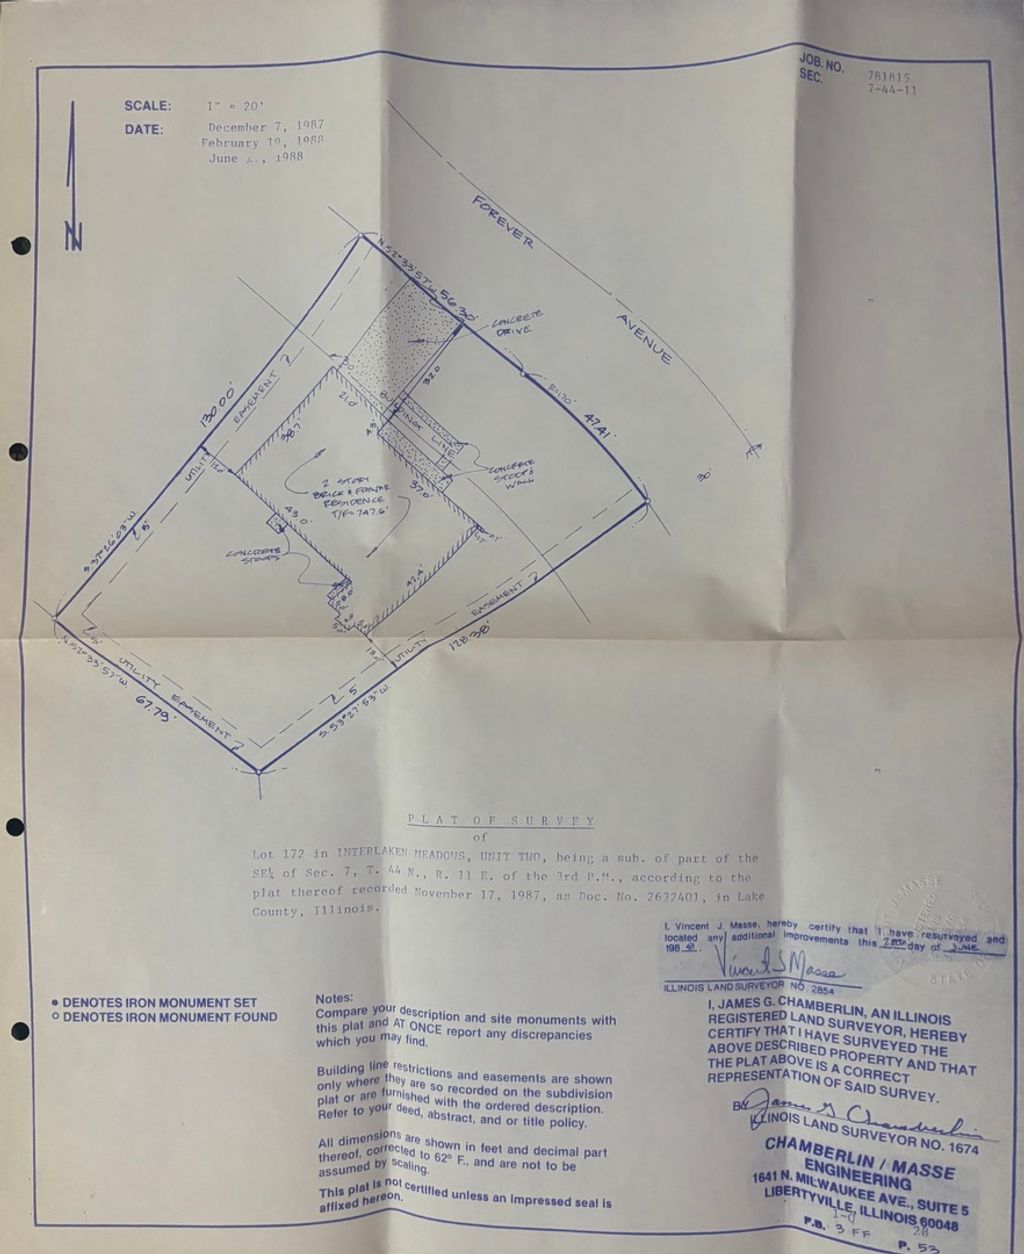 JOB. NO. 781815
SEC. 7-44-11
SCALE: 1" = 20'
DATE: December 7, 1987
February 19, 1988
June , 1988
N
FOREVER
AVENUE
N.52°33'57"W. 56.30'
CONCRETE
DRIVE
R=170'
47.41'
30'
130.00'
UTILITY EASEMENT
5'
S.37°26'03"W.
32.0'
21.0'
4.3'
BUILDING LINE
38.7'
12.0'
CONCRETE
STOOP &
WALL
37.0'
2 STORY
BRICK & FRAME
RESIDENCE
T/F=747.6'
43.0'
CONCRETE
STOOPS
42.4'
UTILITY EASEMENT
128.38'
5'
S.53°27'53"W.
5'
UTILITY EASEMENT
N.52°33'57"W.
67.79'
PLAT OF SURVEY
of
Lot 172 in INTERLAKEN MEADOWS, UNIT TWO, being a sub. of part of the
SE¼ of Sec. 7, T. 44 N., R. 11 E. of the 3rd P.M., according to the
plat thereof recorded November 17, 1987, as Doc. No. 2632401, in Lake
County, Illinois.
I, Vincent J. Masse, hereby certify that I have resurveyed and
located any additional improvements this day of JUNE
198
Vincent J Masse
ILLINOIS LAND SURVEYOR NO. 2854
● DENOTES IRON MONUMENT SET
○ DENOTES IRON MONUMENT FOUND
Notes:
Compare your description and site monuments with
this plat and AT ONCE report any discrepancies
which you may find.
Building line restrictions and easements are shown
only where they are so recorded on the subdivision
plat or are furnished with the ordered description.
Refer to your deed, abstract, and or title policy.
All dimensions are shown in feet and decimal part
thereof, corrected to 62° F., and are not to be
assumed by scaling.
This plat is not certified unless an impressed seal is
affixed hereon.
I, JAMES G. CHAMBERLIN, AN ILLINOIS
REGISTERED LAND SURVEYOR, HEREBY
CERTIFY THAT I HAVE SURVEYED THE
ABOVE DESCRIBED PROPERTY AND THAT
THE PLAT ABOVE IS A CORRECT
REPRESENTATION OF SAID SURVEY.
BY James G Chamberlin
ILLINOIS LAND SURVEYOR NO. 1674
CHAMBERLIN / MASSE
ENGINEERING
1641 N. MILWAUKEE AVE., SUITE 5
LIBERTYVILLE, ILLINOIS 60048
F.B. 3 FF P. 53